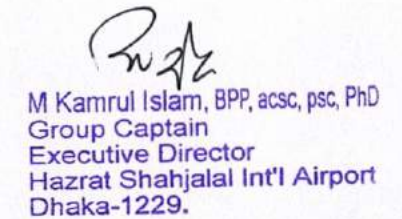 M Kamrul Islam, BPP, acsc, psc, PhD
Group Captain
Executive Director
Hazrat Shahjalal Int'l Airport
Dhaka-1229.